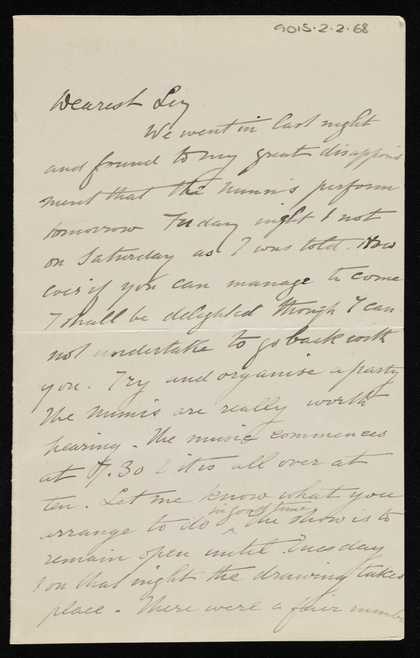 9015.2.2.68
Dearest Ley
We went in last night
and found to my great disappoint
ment that the Mimis perform
tomorrow Friday night & not
on Saturday as I was told. How
ever if you can manage to come
I shall be delighted though I can
not undertake to go back with
you. Try and organise a party
The Mimis are really worth
hearing. The music commences
at 8.30 & it is all over at
ten. Let me know what you
arrange to do in good time the show is to
remain open until Tuesday
& on that night the drawing takes
place. There were a fair number